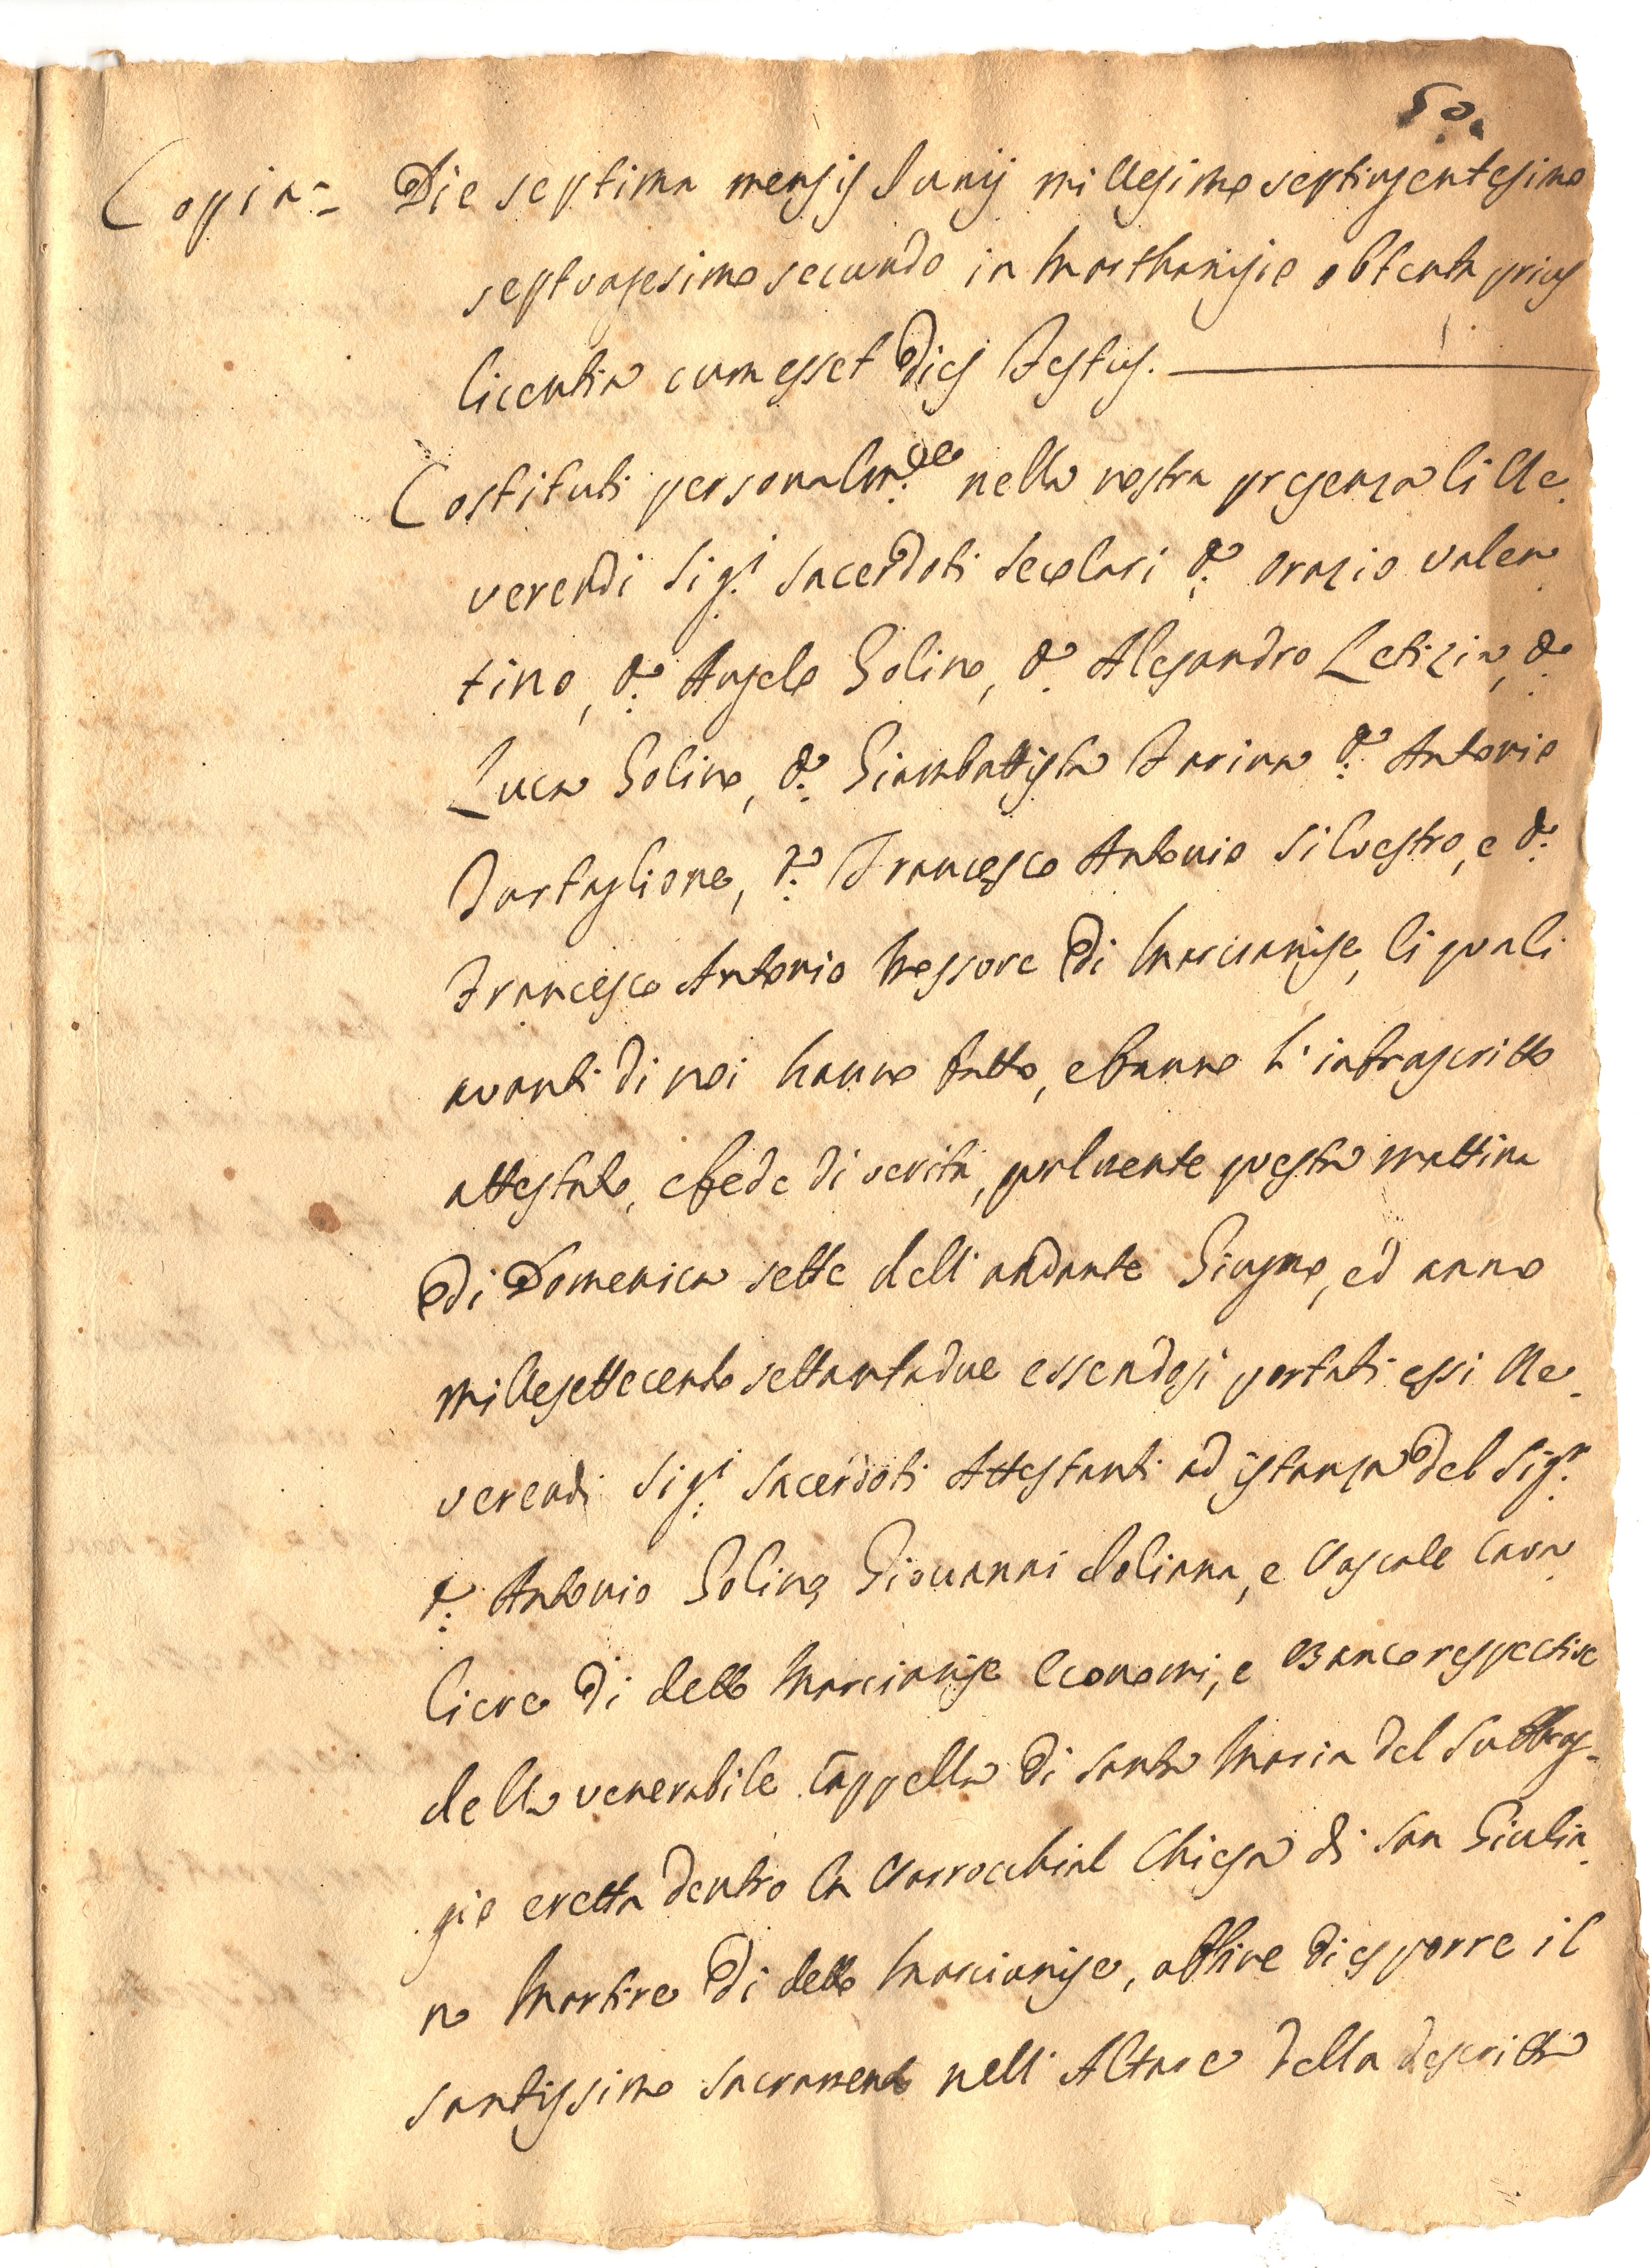 50.
Copia = Die septima mensis Junij millesimo septingentesimo
septuagesimo secundo in Marthanisio obtenta prius
licentia cum esset dies Festus.
Costituti personalm.te nella nostra presenza li Re-
verendi Sig.i Sacerdoti Secolari D. Orazio Valen
tino, D. Angelo Golino, D. Alesandro Letizia, D.
Luca Golino, D. Giambattista Farina D. Antonio
Tartaglione, D. Francesco Antonio Silvestro, e D.
Francesco Antonio Messore di Marcianise, li quali
avanti di noi hanno fatto, e fanno l' infrascritto
attestato, e fede di verità, qualmente questa mattina
di Domenica sette dell' andante Giugno, ed anno
millesettecento settantadue essendosi portati essi Re-
verendi Sig.i Sacerdoti Attestanti ad istanza del Sig.r
D. Antonio Golino, Giovanni Foliana, e Pascale Cava
liere di detto Marcianise Economi, e Banco respective
della venerabile Cappella di Santa Maria del Suffrag-
gio eretta dentro la Parrocchial Chiesa di San Giulia
no Martire di detto Marcianise, affine di esporre il
santissimo Sacramento nell' Altare della descritta